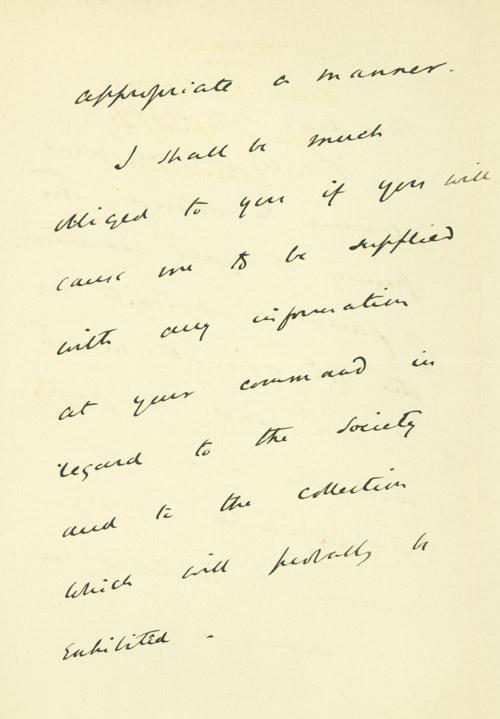 appropriate a manner.
I shall be much
obliged to you if you will
cause me to be supplied
with any information
at your command in
regard to the Society
and to the collection
which will probably be
exhibited.